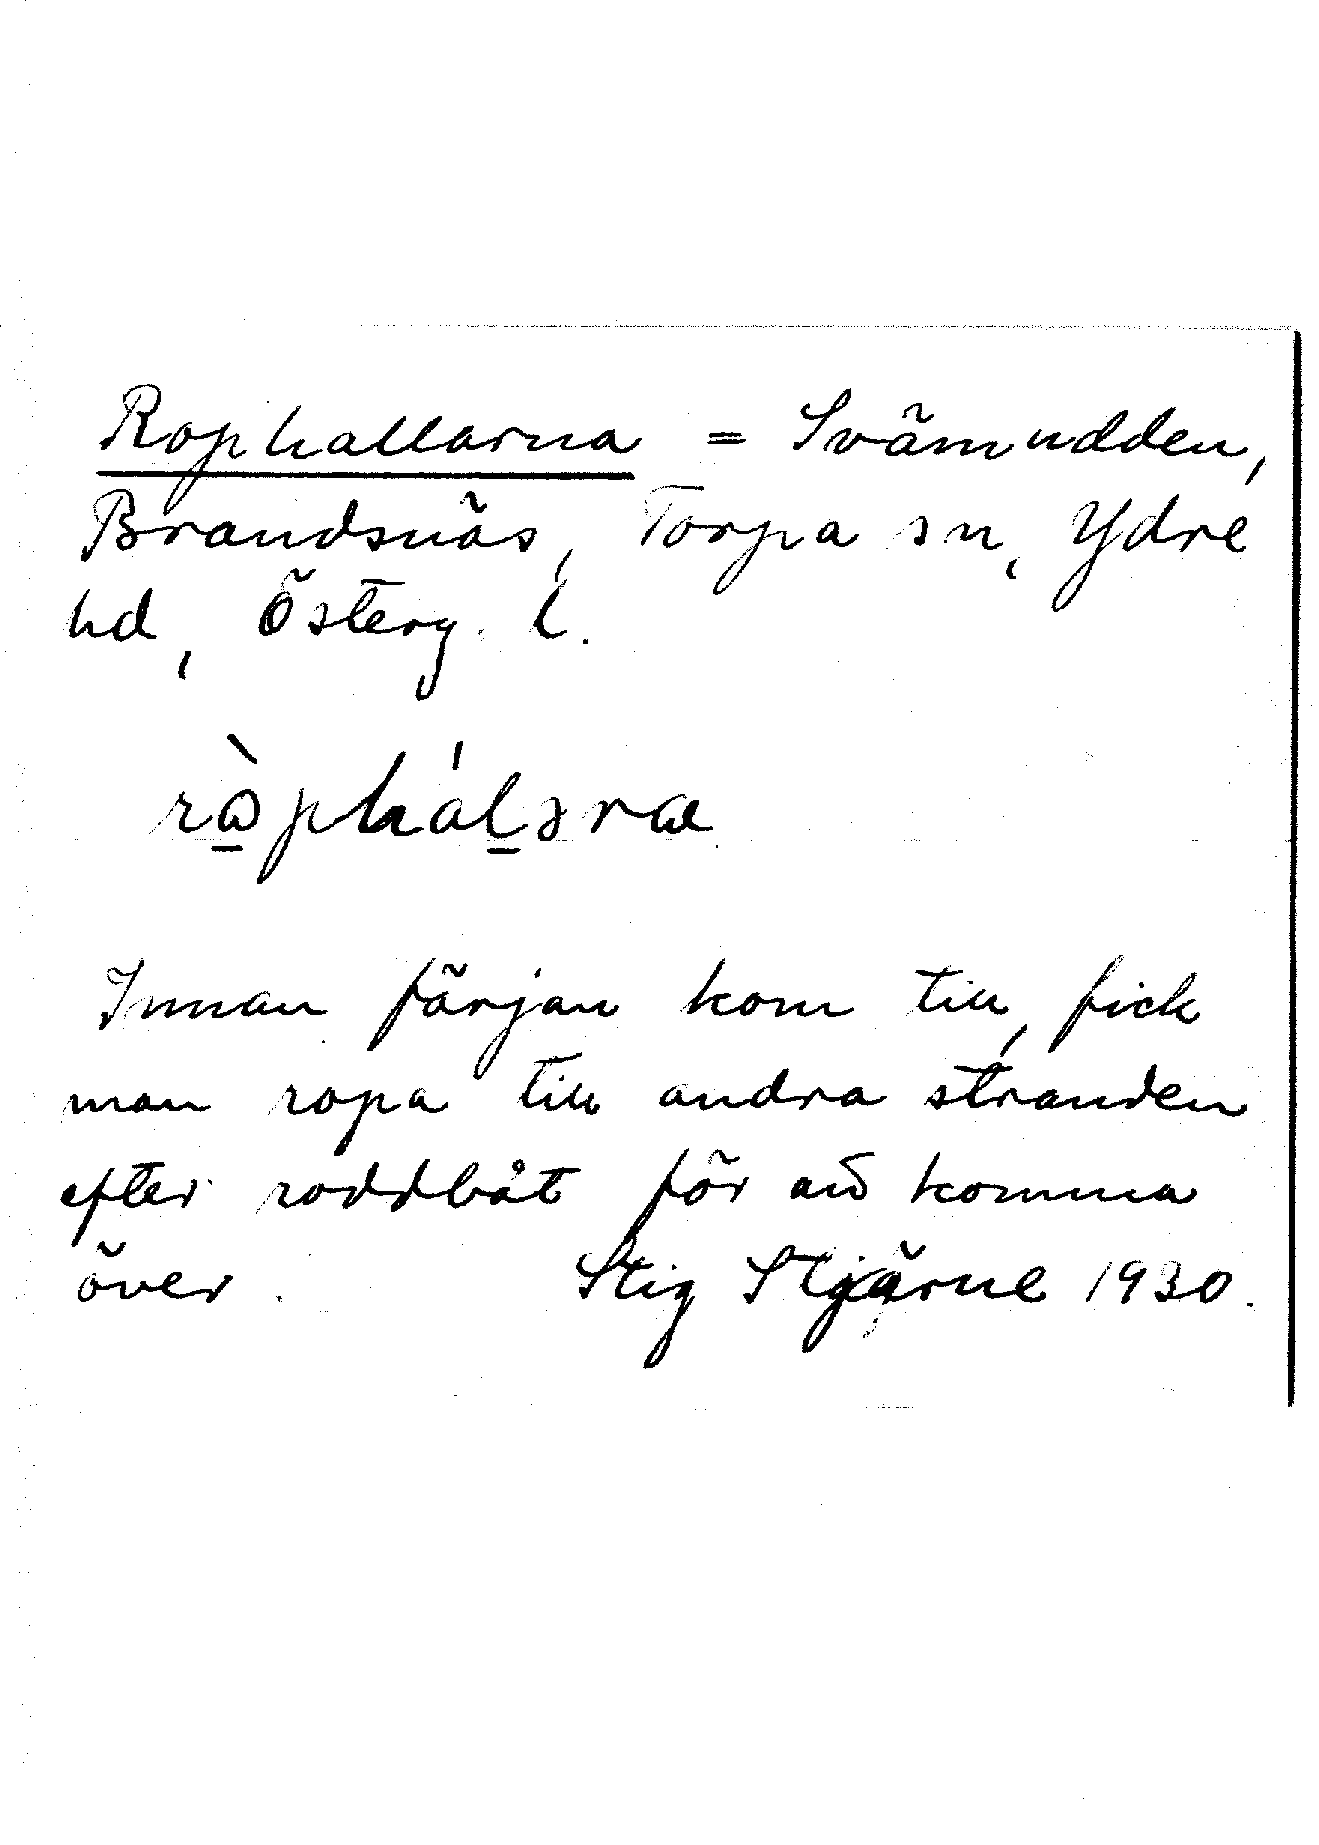 Rophallarna = Svämudden,
Brandsnäs, Torpa sn, Ydre
hd, Österg. l.
ròphálərα
Innan färjan kom till, fick
man ropa till andra stranden
efter roddbåt för att komma
över. Stig Stjärne 1930.